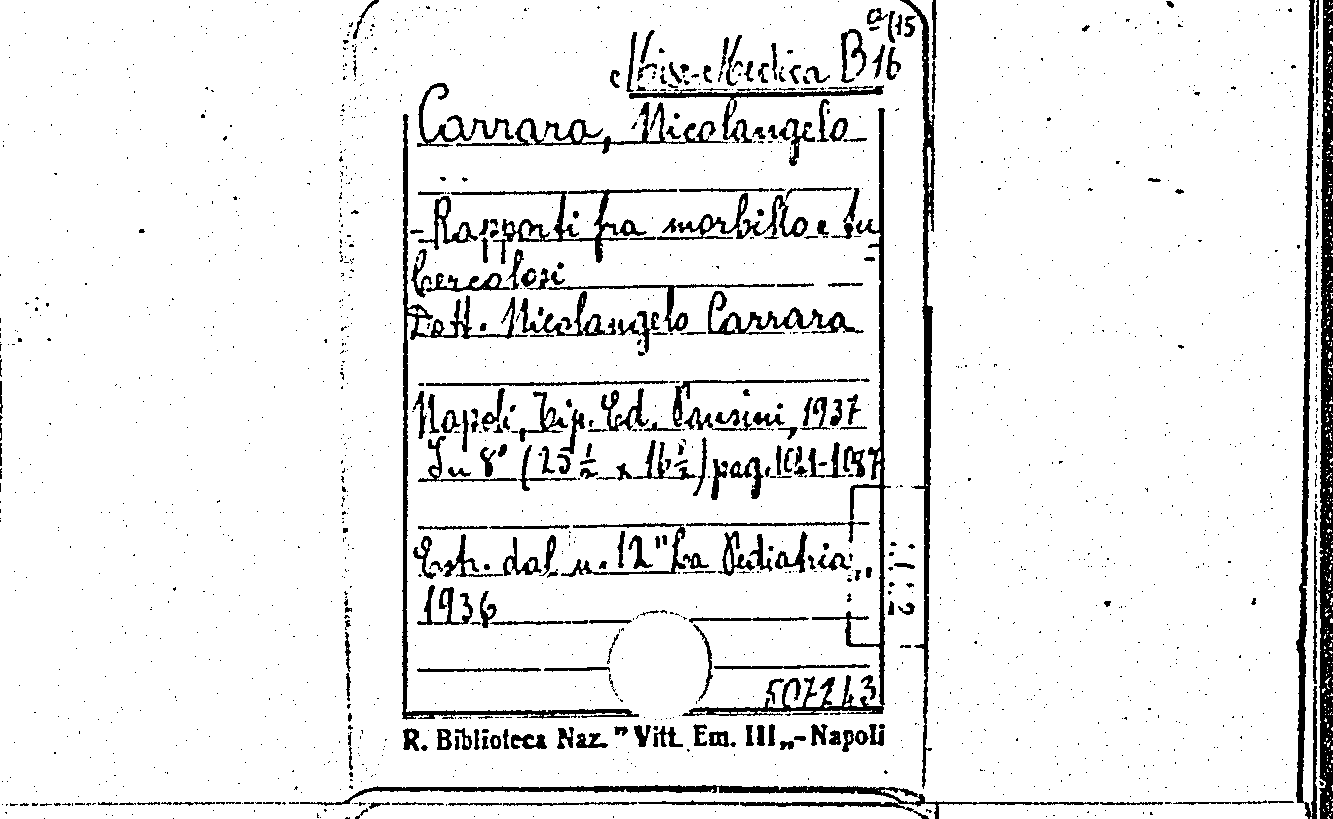 Misc. Medica B 16 a(15
Carrara, Nicolangelo
- Rapporti fra morbillo e tu=
bercolosi
Dott. Nicolangelo Carrara
Napoli, Tip. Ed. Pansini, 1937
In 8° (25 ½ x 16 ½) pag. 1021-1087
Estr. dal n. 12 "La Pediatria"
1936
R. Biblioteca Naz. "Vitt. Em. III„ - Napoli